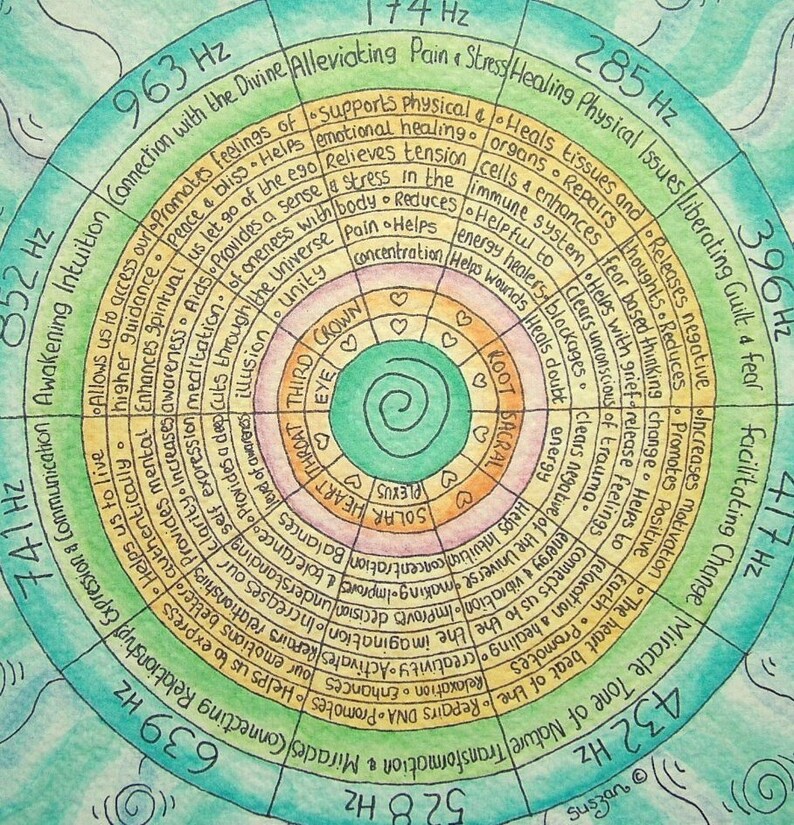 174 Hz
Alleviating Pain & Stress
•Supports physical &
emotional healing•
Relieves tension
& stress in the
body • Reduces
Pain • Helps
concentration
285 Hz
Healing Physical Issues
•Heals tissues and
organs • Repairs
cells & enhances
immune system
•Helpful to
energy healers
Helps wounds
396 Hz
Liberating Guilt & fear
•Releases negative
thoughts • Reduces
fear based thinking
•Helps with grief•
Clears unconscious
blockages •
Heals doubt
ROOT
417 Hz
facilitating Change
Increases motivation
• Promotes Positive
change • Helps to
release feelings
of trauma •
Clears negative
energy
SACRAL
432 Hz
Miracle Tone of Nature
•The heart beat of the
Earth • Promotes
relaxation & healing
connects us to the
energy & vibration
of the Universe•
Helps Intuition
528 Hz
Transformation & Miracles
•Repairs DNA•Promotes
Relaxation • Enhances
creativity•Activates
the imagination •
Improves decision
making•Improves
concentration
SOLAR
PLEXUS
639 Hz
Connecting Relationships
•Helps us to express
our emotions better•
Repairs relationships
•Increases our
understanding
& tolerance•
Balances
HEART
741 Hz
Expression & Communication
•Helps us to live
authentically •
Provides mental
clarity•Increases
self expression
•Provides a deep
level of
THROAT
852 Hz
Awakening Intuition
•Allows us to access our
higher guidance •
Enhances spiritual
awareness • Aids
meditation •
Cuts through
illusion
THIRD
EYE
963 Hz
Connection with the Divine
•Promotes feelings of
peace & bliss • Helps
us let go of the ego
•Provides a sense
of oneness with
the Universe
• Unity
CROWN
suszan ©